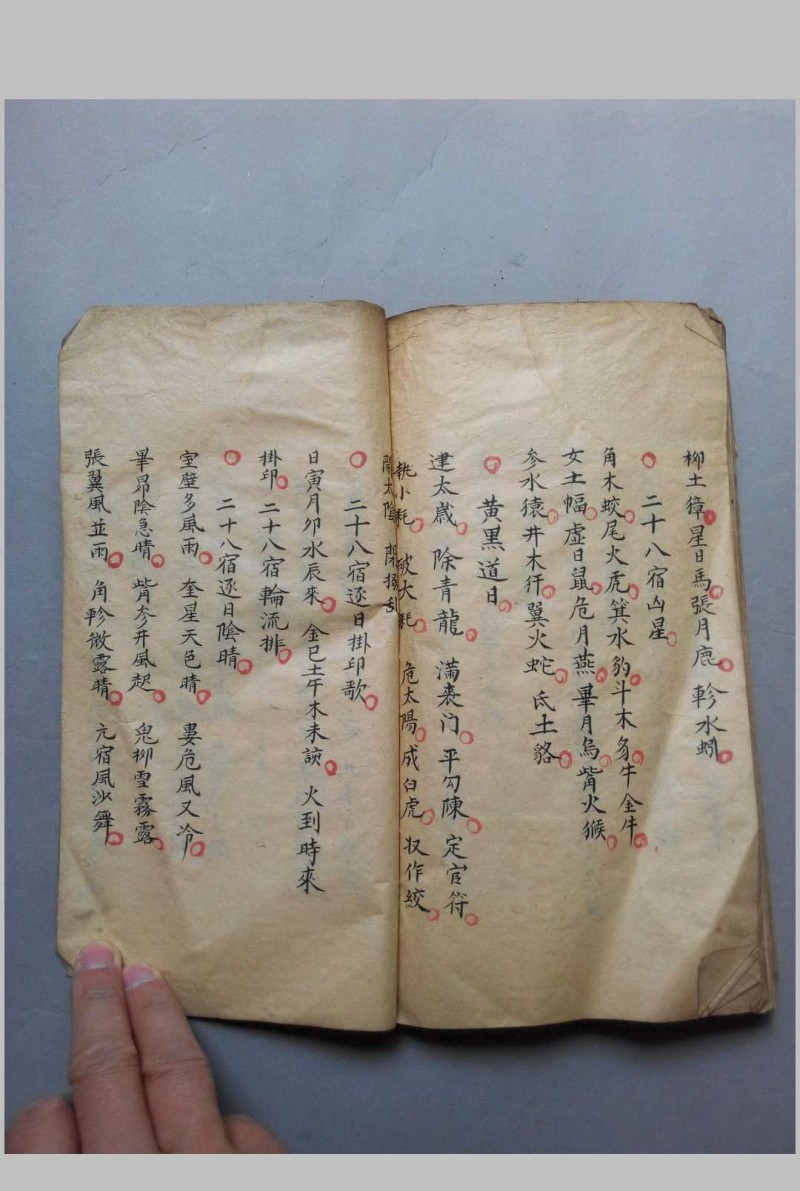 柳土獐星日馬張月鹿 軫水蚓
二十八宿凶星
角木蛟尾火虎箕水豹斗木豸牛金牛
女土蝠虛日鼠危月燕畢月烏觜火猴
参水猿井木犴翼火蛇氐土貉
黃黑道日
建太歲 除青龍 滿喪门 平勾陳 定官符
執小耗 破大耗 危太陽 成白虎 収作絞
開太陰
二十八宿逐日掛印歌
日寅月卯水辰來 金巳土午木未 火到時來
掛印 二十八宿輪流排
二十八宿逐日陰晴
室壁多風雨 奎星天色晴 婁危風又冷
畢昴陰急晴 觜参井風起 鬼柳雪霧露
張翼風並雨 角軫微露晴 亢宿風沙舞